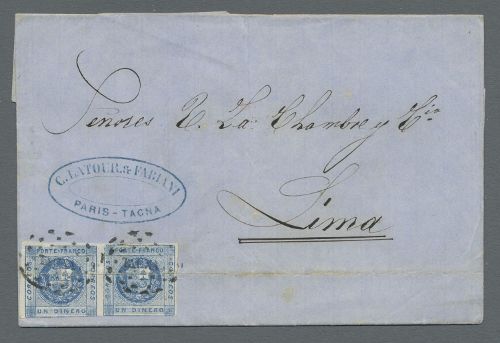 Señores T. La Chambre y Cia
Lima
C. LATOUR & FABIANI
PARIS - TACNA
PORTE-FRANCO
CORREOS
UN DINERO
PORTE-FRANCO
CORREOS
UN DINERO